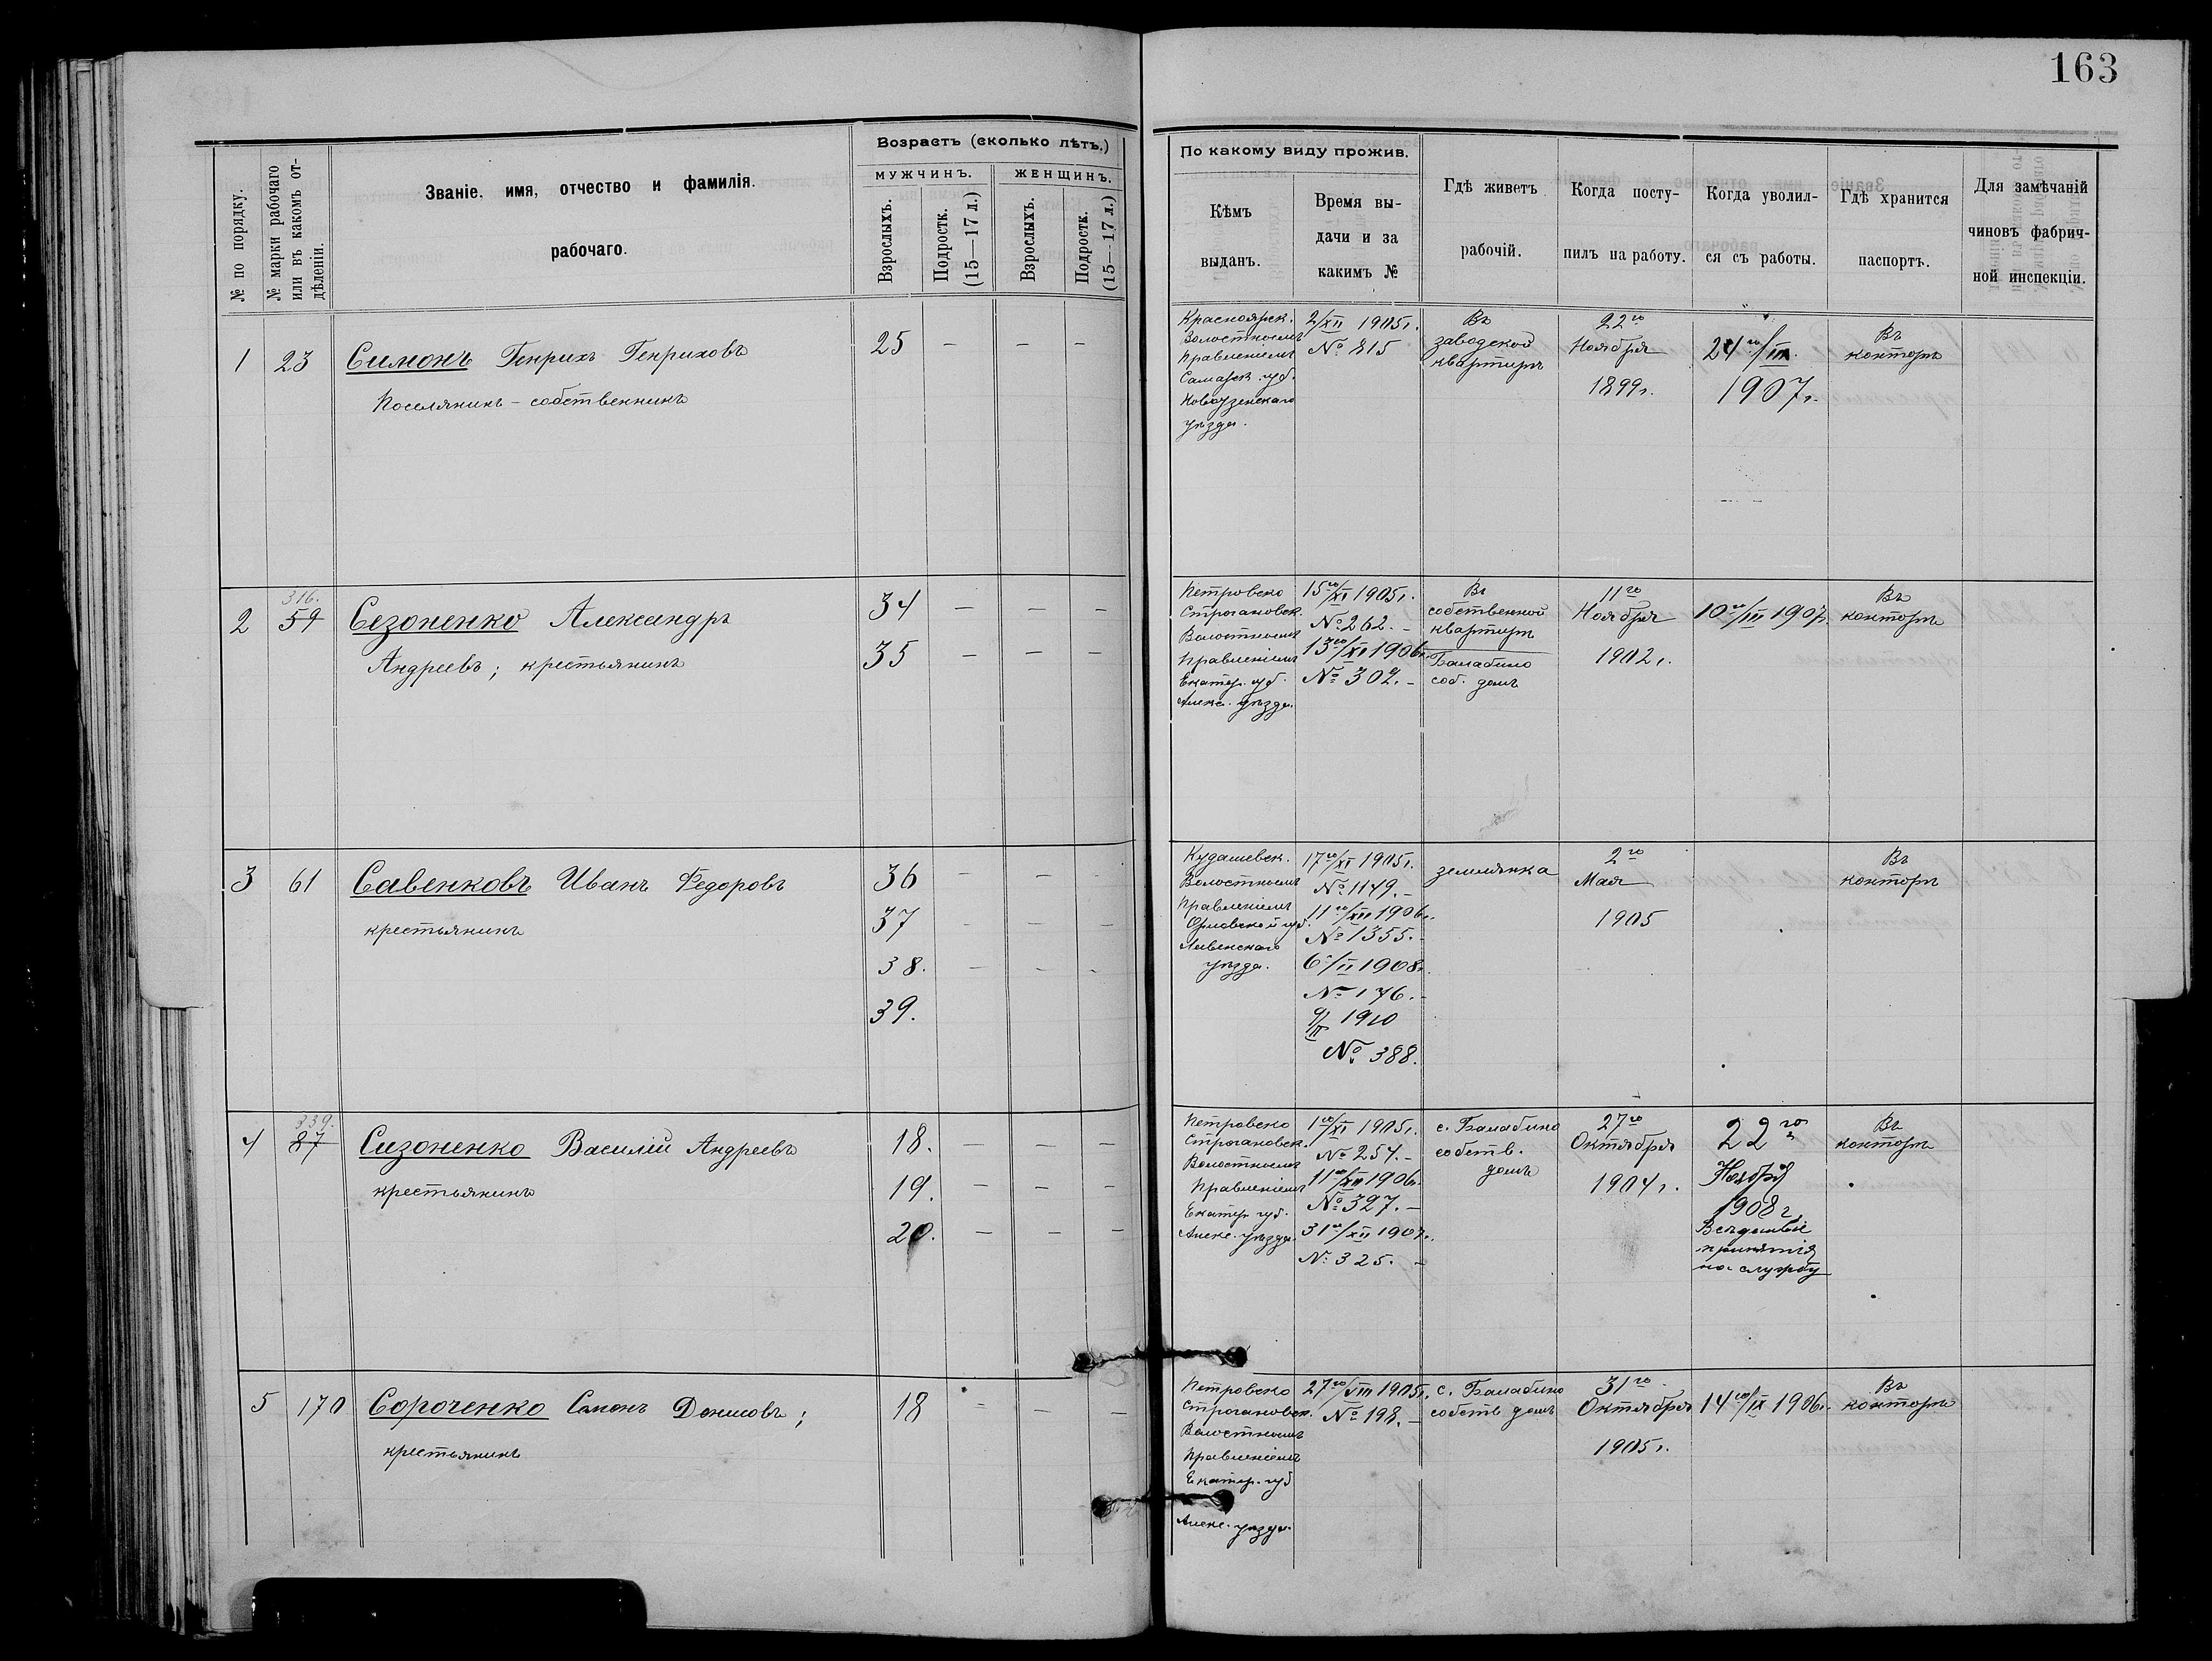 163
№ по порядку.
№ марки рабочаго
или въ какомъ от-
дѣленіи.
Званіе, имя, отчество и фамилія.
рабочаго.
Возрастъ (сколько лѣтъ.)
МУЖЧИНЪ.
ЖЕНЩИНЪ.
Взрослыхъ.
Подростк.
(15—17 л.)
Взрослыхъ.
Подростк.
(15—17 л.)
По какому виду прожив.
Кѣмъ
выданъ.
Время вы-
дачи и за
какимъ №
Гдѣ живетъ
рабочій.
Когда посту-
пилъ на работу.
Когда уволил-
ся съ работы.
Гдѣ хранится
паспортъ.
Для замѣчаній
чиновъ фабрич-
ной инспекціи.
1
23
Симонъ Генрихъ Генриховъ
Поселянинъ – собственникъ
25 – – –
Красноярск.
Волостнымъ
Правленіемъ
Самарск. губ.
Новоузенскаго
уѣзда.
2/XII 1905 г.
№ 815
Въ
заводской
квартирѣ
22го
Ноября
1899 г.
24го/III.
1907 г.
Въ
конторѣ
2
316.
59
Сезоненко Александръ
Андреевъ; крестьянинъ
34 – – –
35 – – –
Петровско
Строгановск.
Волостнымъ
Правленіемъ
Екатер. губ.
Алекс. уѣзда.
15го/XI 1905 г.
№ 262. –
13го/XI 1906 г.
№ 302. –
Въ
собственной
квартирѣ
Балабино
соб. домъ
11го
Ноября
1902 г.
10го/III 1907 г.
Въ
конторѣ
3
61
Савенковъ Иванъ Федоровъ
крестьянинъ
36 – – –
37 – – –
38. – – –
39.
Кудашевск.
Волостнымъ
Правленіемъ
Орловской губ.
Ливенскаго
уѣзда.
17го/XI 1905 г.
№ 1149. –
11го/XII 1906 г.
№ 1355. –
6/II 1908 г.
№ 176. –
9/III 1910
№ 388.
землянка
2го
Мая
1905
Въ
конторѣ
4
339.
87
Сизоненко Василій Андреевъ
крестьянинъ
18. – – –
19. – – –
20. – – –
Петровско
Строгановск.
Волостнымъ
Правленіемъ
Екатер. губ.
Алекс. уѣзда.
1го/XI 1905 г.
№ 254. –
11го/XII 1906 г.
№ 327. –
31го/XII 1907 г.
№ 325. –
с. Балабино
собств.
домъ
27го
Октября
1904 г.
22го
Ноября
1908 г.
Вслѣдствіе
принятія
на службу
Въ
конторѣ
5
170
Сороченко Семенъ Денисовъ;
крестьянинъ
18 – – –
Петровско
Строгановск.
Волостнымъ
Правленіемъ
Екатер. губ
Алекс. уѣзда.
27го/VIII 1905 г.
№ 198. –
с. Балабино
собств домъ
31го
Октября
1905 г.
14го/IX 1906 г.
Въ
конторѣ